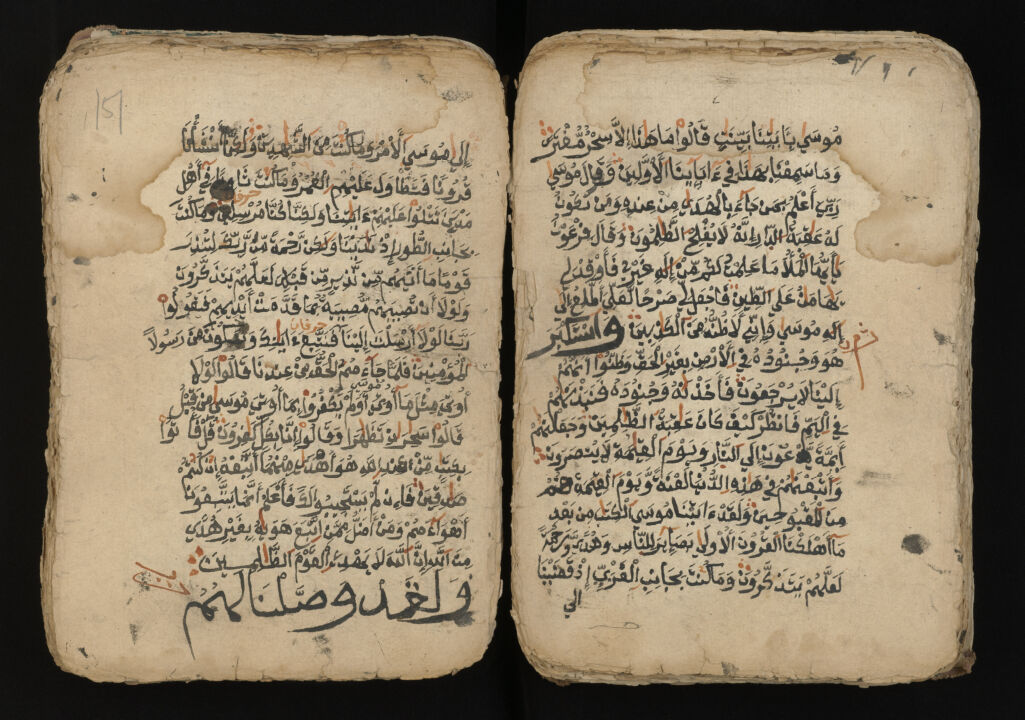 موسى بايتنا بينت قالوا ما هذا الا سحر مفترى
وما سمعنا بهذا في ءابآينا الأولين وقال موسى
ربي أعلم بمن جاء بالهدى من عنده ومن تكون
له عقبة الدار إنه لا يفلح الظلمون وقال فرعون
يأيها الملأ ما علمت لكم من إله غيري فأوقد لي
يهامن على الطين فاجعل لي صرحا لعلي أطلع إلى
إله موسى وإني لأظنه من الكذبين واستكبر
هو وجنوده في الأرض بغير الحق وظنوا أنهم
إلينا لا يرجعون فأخذنه وجنوده فنبذنهم
في اليم فانظر كيف كان عقبة الظلمين وجعلنهم
أيمة يدعون إلى النار ويوم القيمة لا ينصرون
وأتبعنهم في هذه الدنيا لعنة ويوم القيمة هم
من المقبوحين ولقد ءاتينا موسى الكتب من بعد
ما أهلكنا القرون الأولى بصاير للناس وهدى ورحمة
لعلهم يتذكرون وما كنت بجانب الغربي إذ قضينا
إلى
إلى موسى الأمر وما كنت من الشهدين ولكنا أنشأنا
قرونا فتطاول عليهم العمر وما كنت ثاويا في أهل
مدين تتلوا عليهم ءايتنا ولكنا كنا مرسلين وما كنت
بجانب الطور إذ نادينا ولكن رحمة من ربك لتنذر
قوما ما أتيهم من نذير من قبلك لعلهم يتذكرون
ولولا أن تصيبهم مصيبة بما قدمت أيديهم فيقولوا
ربنا لولا أرسلت إلينا رسولا فنتبع ءايتك ونكون من
المؤمنين فلما جاءهم الحق من عندنا قالوا لولا
أوتي مثل ما أوتي موسى أولم يكفروا بما أوتي موسى من قبل
قالوا سحران تظهرا وقالوا إنا بكل كفرون قل فأتوا
بكتب من عند الله هو أهدى منهما أتبعه إن كنتم
صدقين فإن لم يستجيبوا لك فأعلم أنما يتبعون
أهواءهم ومن أضل ممن اتبع هويه بغير هدى
من الله إن الله لا يهدي القوم الظلمين
ولقد وصلنا لهم